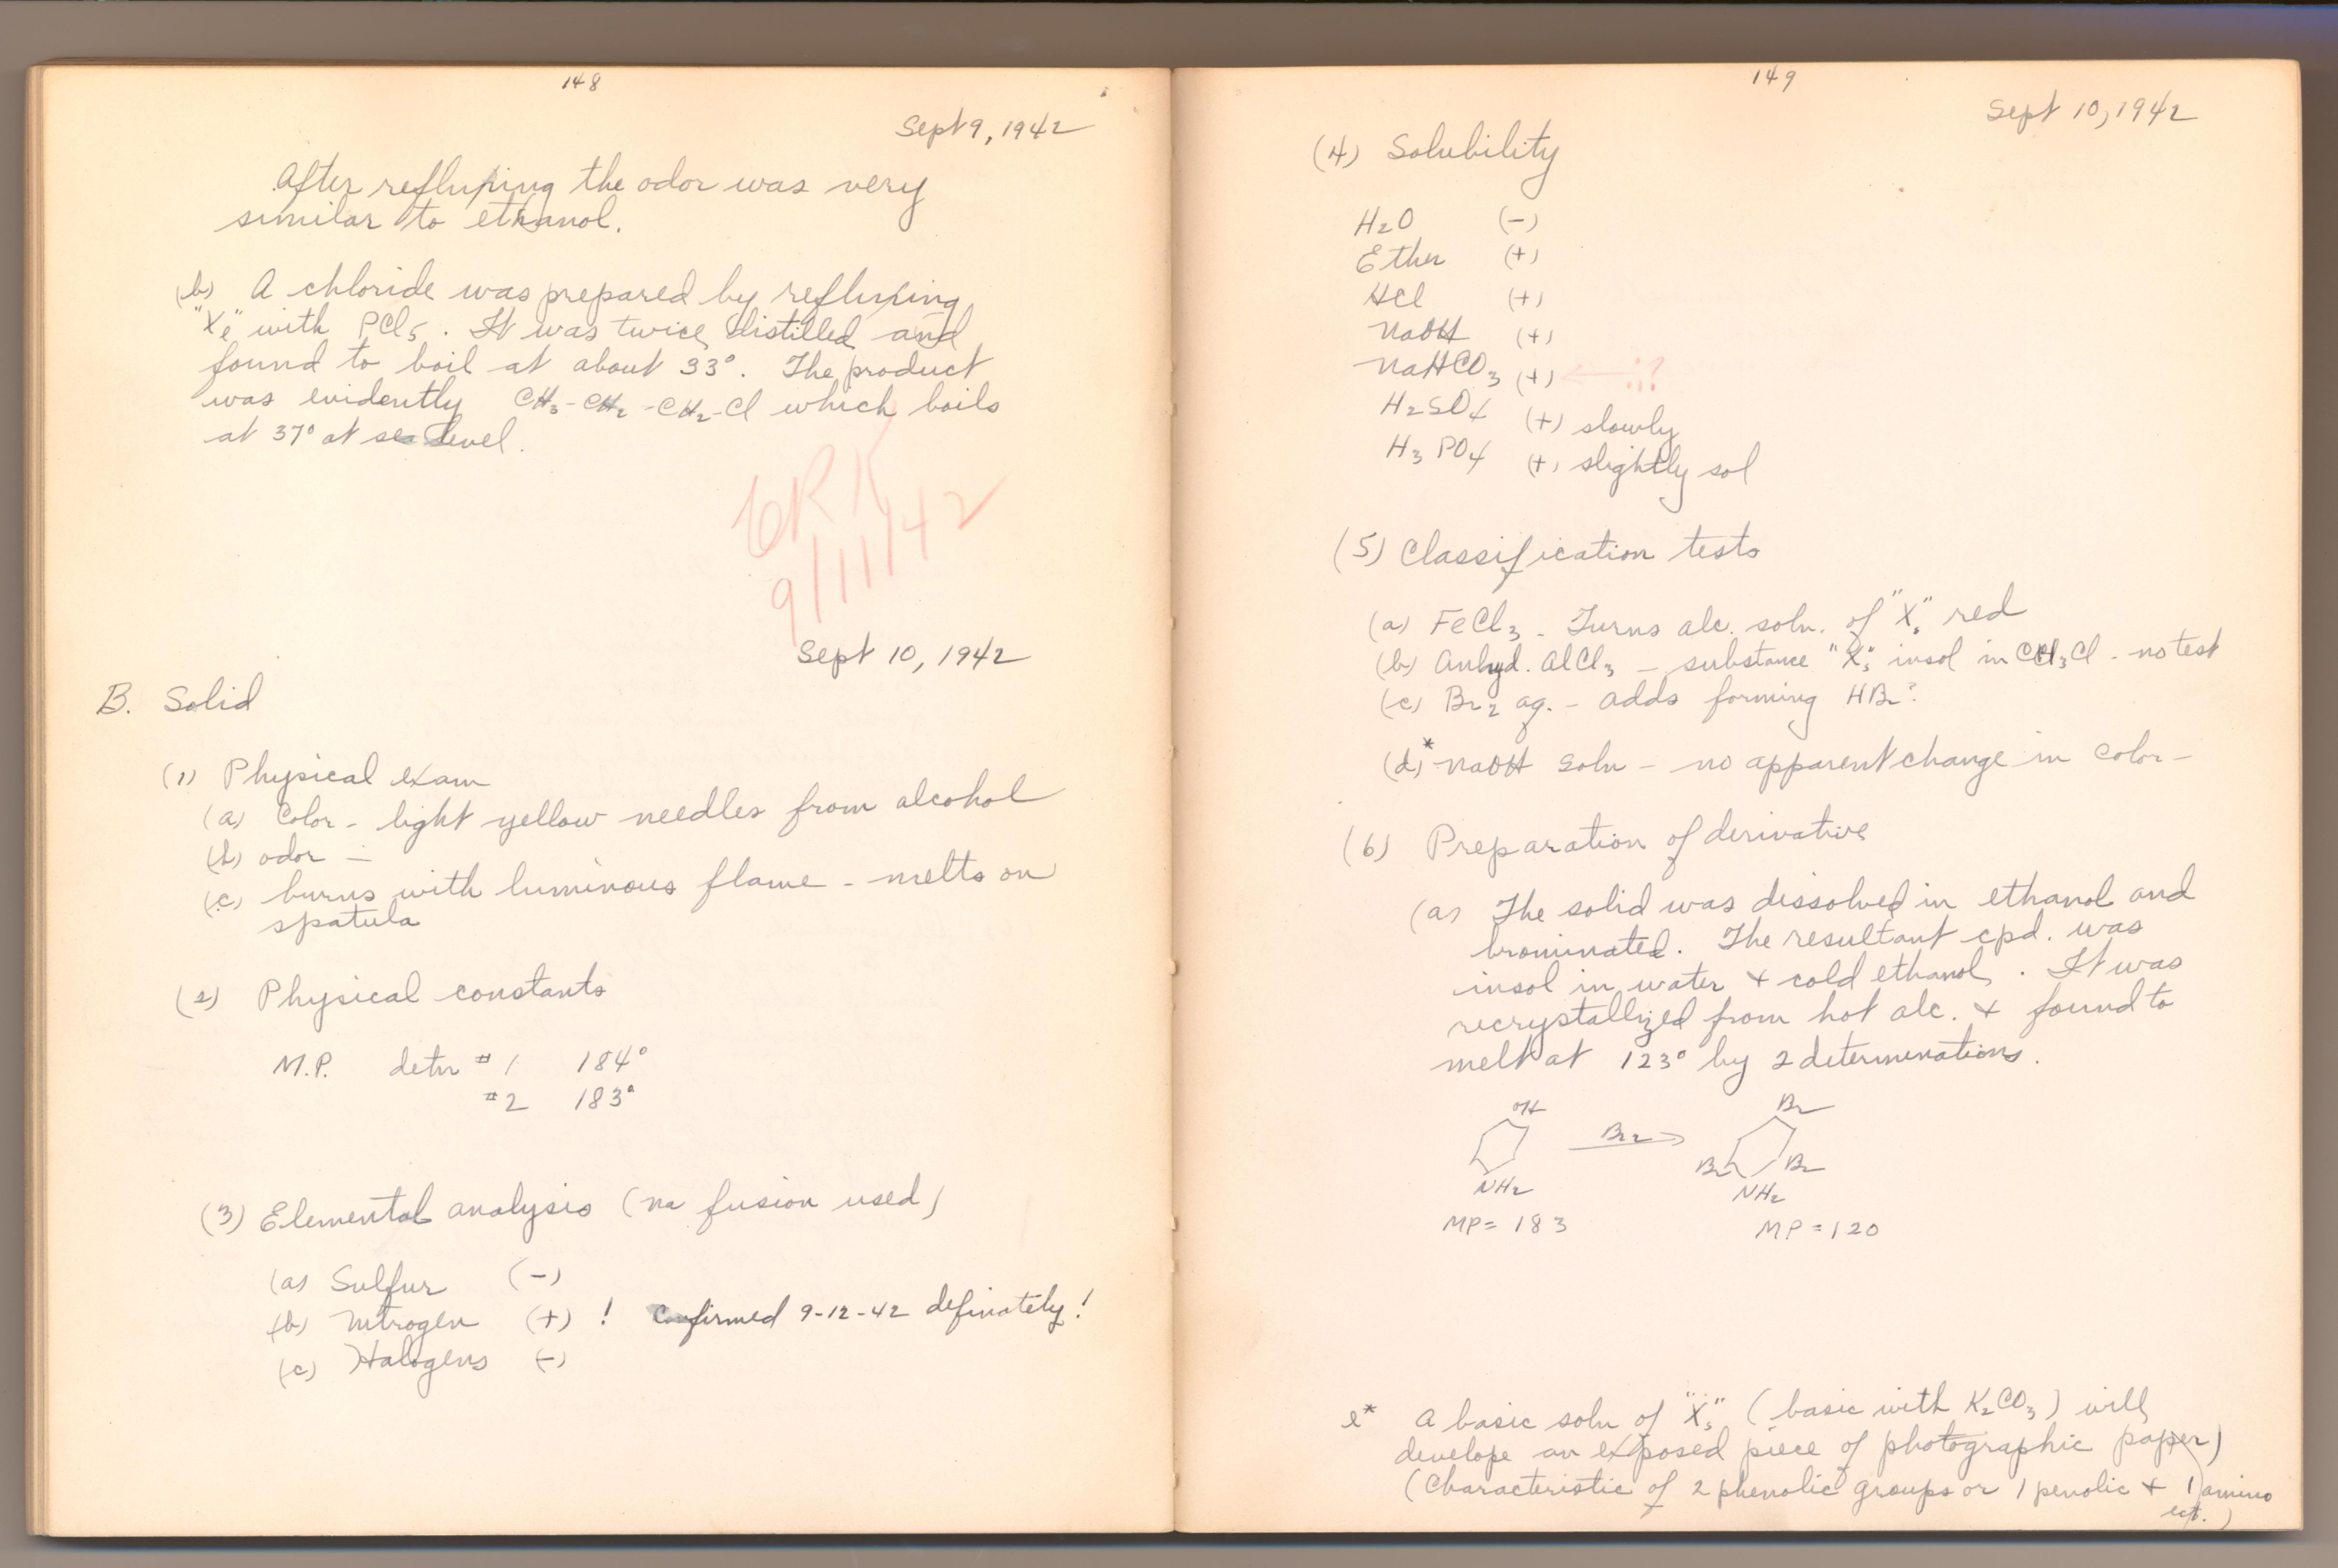 148
Sept 9, 1942
After refluxing the odor was very
similar to ethanol.
(b) A chloride was prepared by refluxing
with PCl5. It was twice distilled and
found to boil at about 33°. The product
was evidently CH3-CH2-CH2-Cl which boils
at 37° at sea level.
9/11/42
Sept 10, 1942
B. Solid
(1) Physical exam
(a) Color - light yellow needles from alcohol
(b) odor -
(c) burns with luminous flame - melts on
spatula
(2) Physical constants
M.P. detn #1 184°
#2 183°
(3) Elemental analysis (Na fusion used)
(a) Sulfur (-)
(b) Nitrogen (+) ! Confirmed 9-12-42 definately!
(c) Halogens (-)
149
Sept 10, 1942
(4) Solubility
H2O (-)
Ether (+)
HCl (+)
NaOH (+)
NaHCO3 (+) ←
H2SO4 (+) slowly
H3PO4 (+) slightly sol
(5) Classification tests
(a) FeCl3 - Turns alc. soln. of "X5" red
(b) Anhyd. AlCl3 - substance "X5" insol in CCl3Cl - no test
(c) Br2 aq. - adds forming HBr?
(d)* NaOH soln - no apparent change in color -
(6) Preparation of derivative
(a) The solid was dissolved in ethanol and
brominated. The resultant cpd. was
insol in water + cold ethanol. It was
recrystallized from hot alc. + found to
melt at 123° by 2 determinations.
OH Br
Br2 →
Br Br
NH2 NH2
MP= 183 MP=120
e* A basic soln of "X5" (basic with K2CO3) will
develope an exposed piece of photographic paper)
(Characteristic of 2 phenolic groups or 1 penolic + 1 amino
ect.)